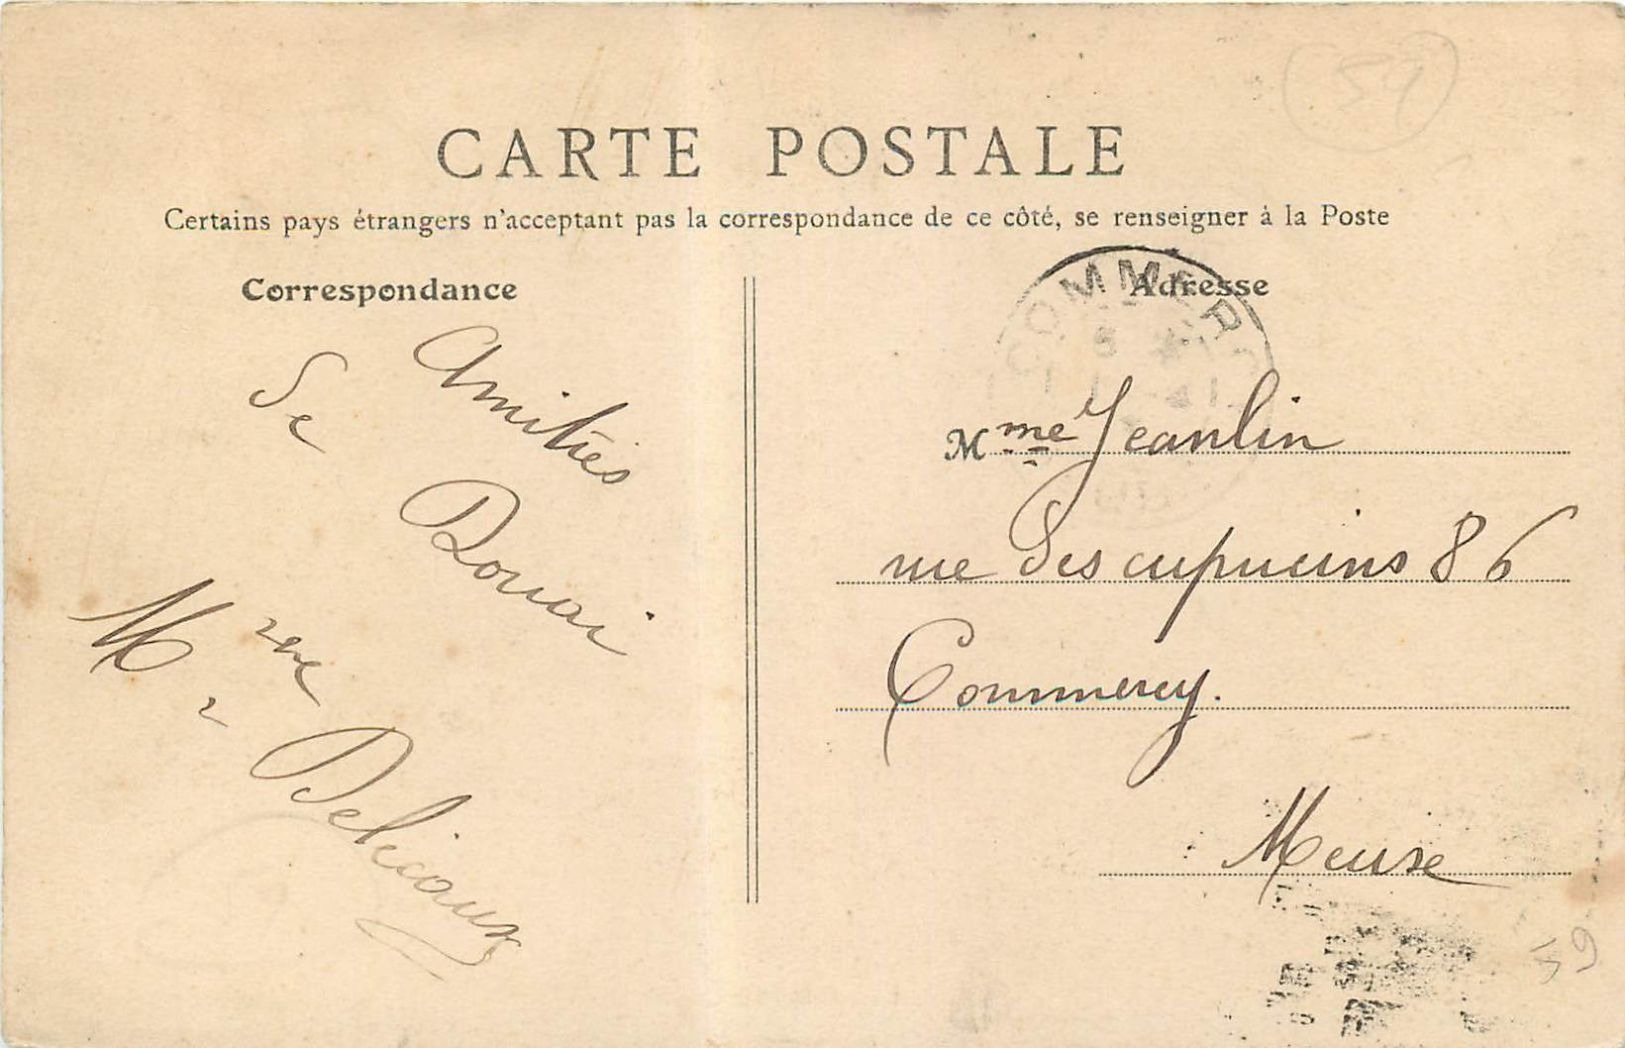 (59)
CARTE POSTALE
Certains pays étrangers n'acceptant pas la correspondance de ce côté, se renseigner à la Poste
Correspondance
Amitiés
de Douai
Mme Delicaux
Adresse
COMMERCY
Mme Jeanlin
rue des capucins 86
Commercy.
Meuse
59